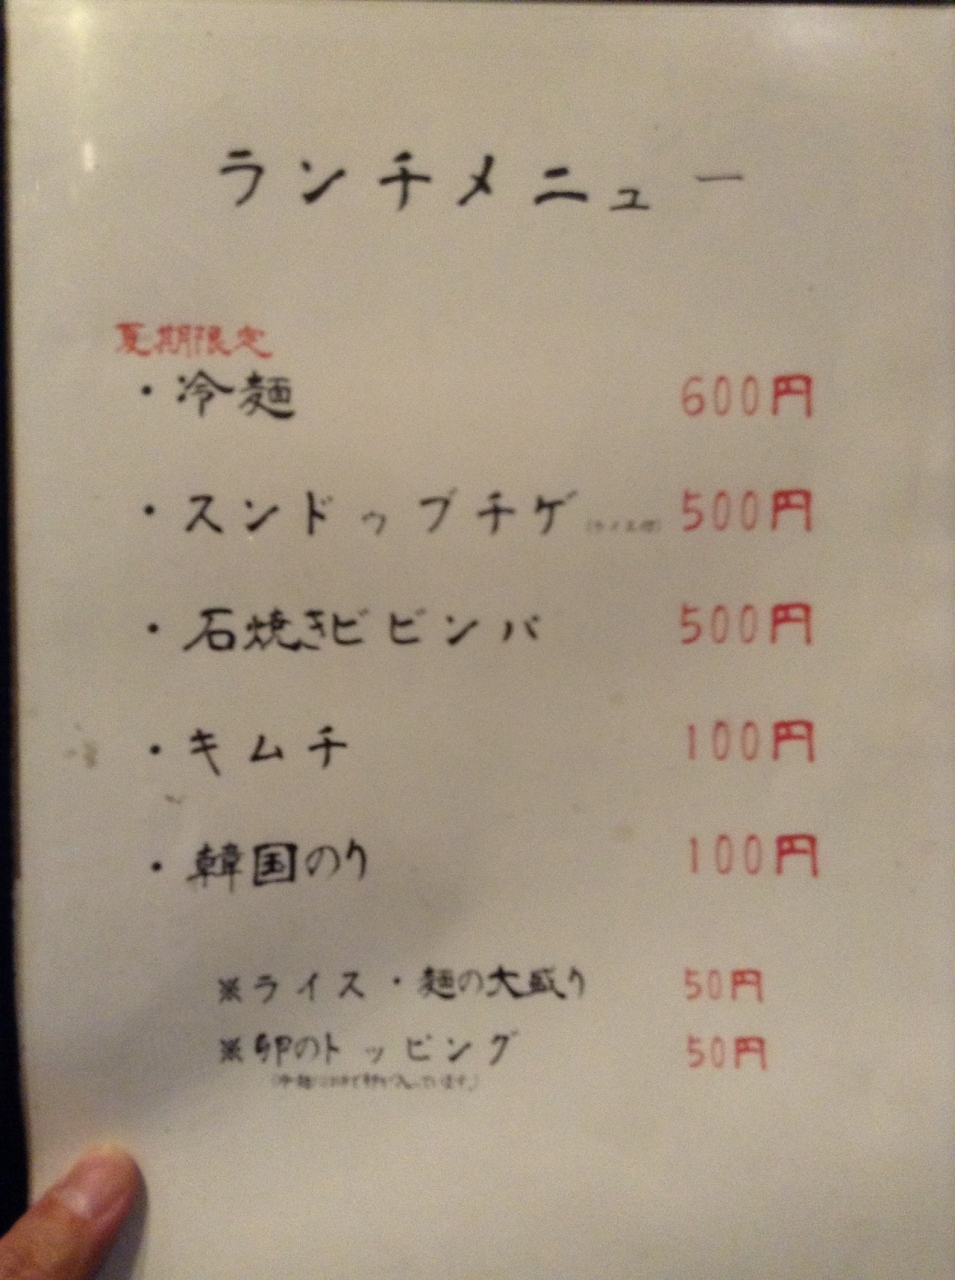 ランチメニュー
夏期限定
・冷麺 600円
・スンドゥブチゲ(ライス付) 500円
・石焼きビビンバ 500円
・キムチ 100円
・韓国のり 100円
※ライス・麺の大盛り 50円
※卵のトッピング 50円